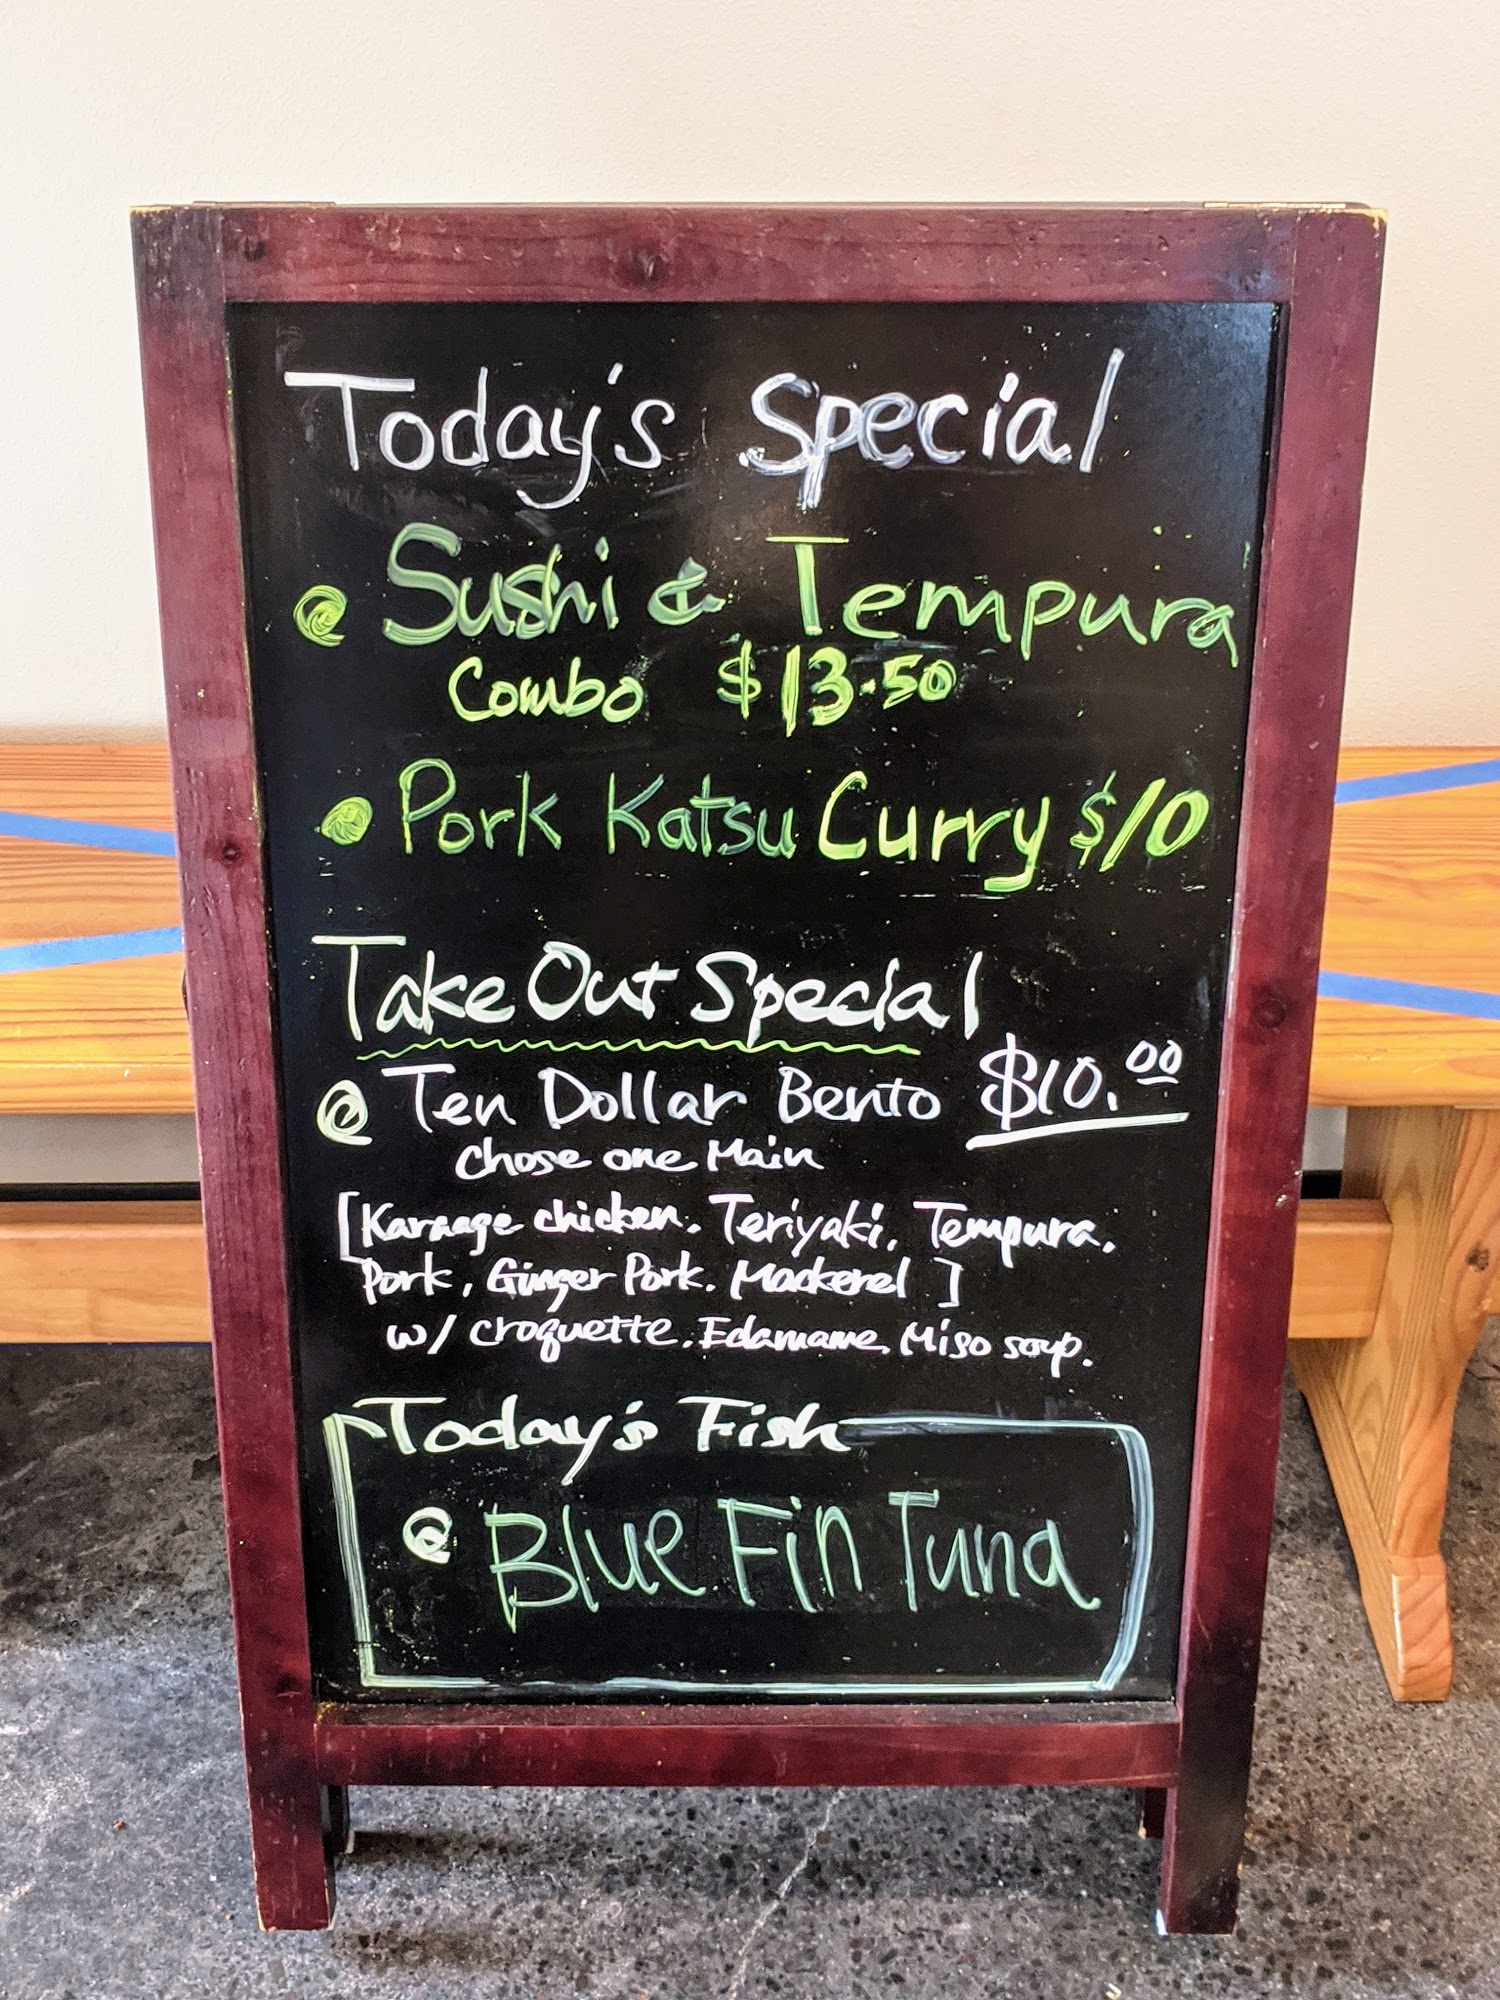 Today's Special
Sushi & Tempura
Combo $13.50
Pork Katsu Curry $10
Take Out Special
Ten Dollar Bento $10.00
Chose one Main
[Karaage chicken. Teriyaki. Tempura.
Pork. Ginger Pork. Mackerel]
w/ croquette. Edamame. Miso soup.
Today's Fish
Blue Fin Tuna